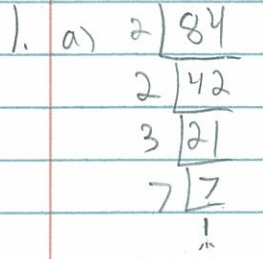 1. a) 2 | 84
2 | 42
3 | 21
7 | 7
1